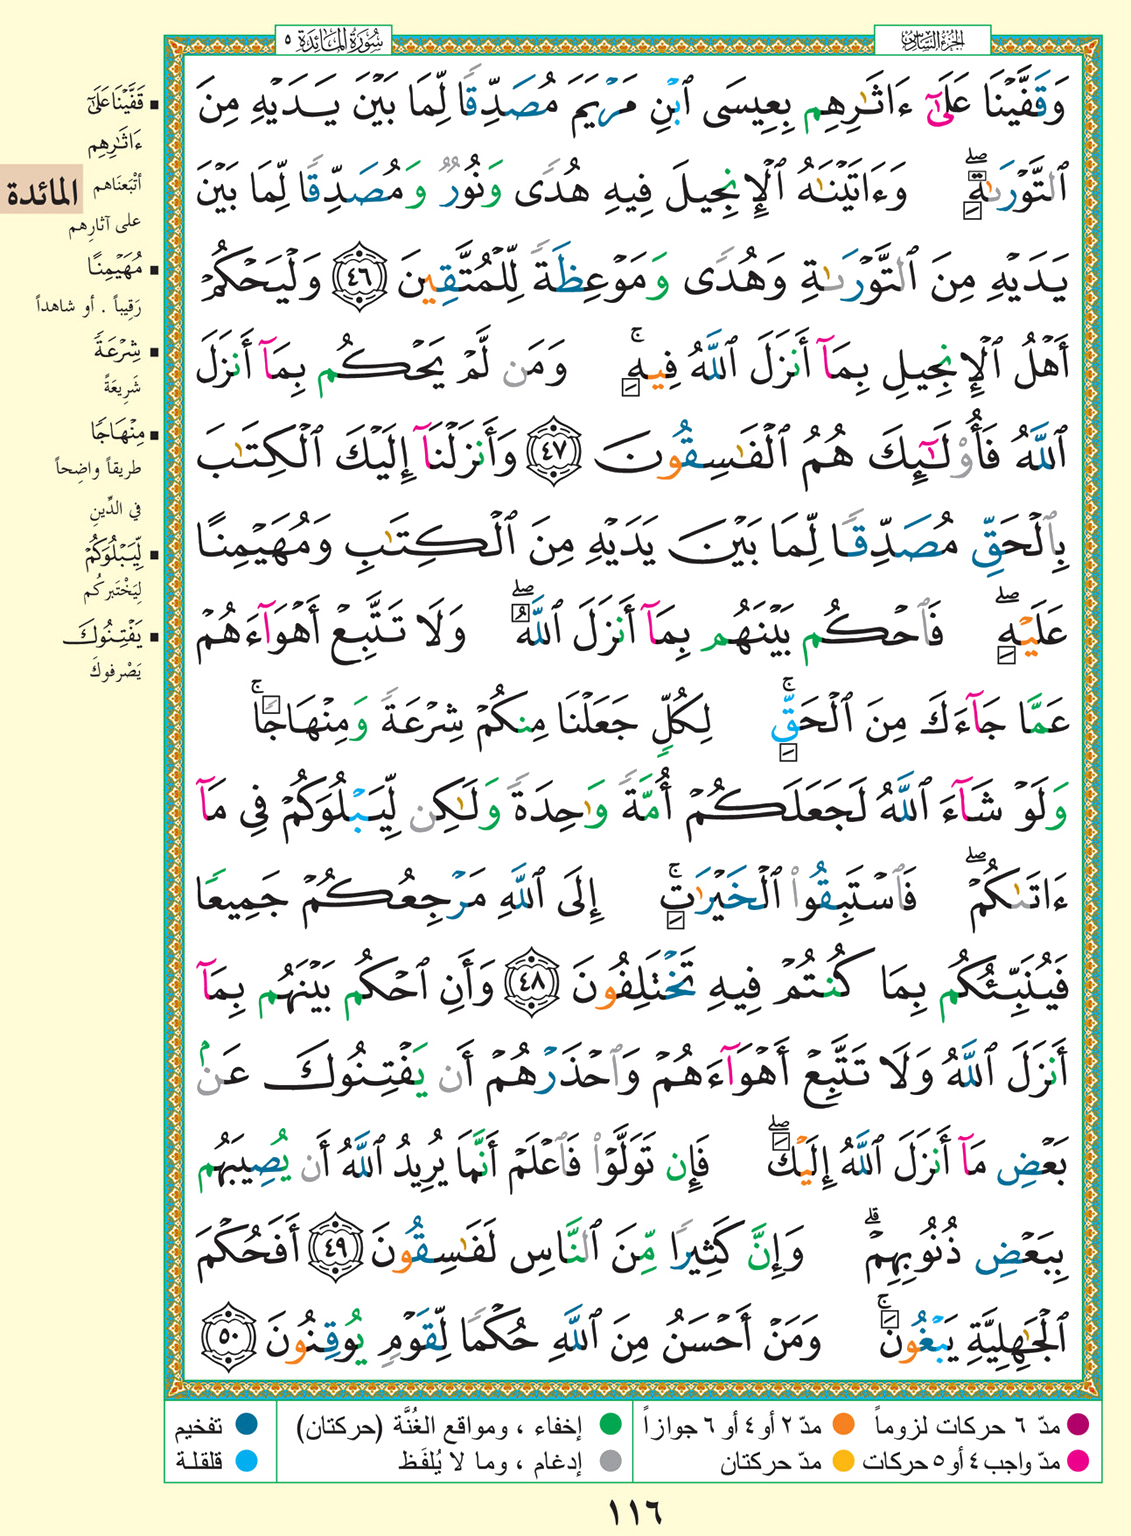 الجزء السادس
سُورَةُ المَائدَة ٥
وَقَفَّيْنَا عَلَىٰٓ ءَاثَٰرِهِم بِعِيسَى ٱبْنِ مَرْيَمَ مُصَدِّقًا لِّمَا بَيْنَ يَدَيْهِ مِنَ
ٱلتَّوْرَىٰةِ ۖ وَءَاتَيْنَٰهُ ٱلْإِنجِيلَ فِيهِ هُدًى وَنُورٌ وَمُصَدِّقًا لِّمَا بَيْنَ
يَدَيْهِ مِنَ ٱلتَّوْرَىٰةِ وَهُدًى وَمَوْعِظَةً لِّلْمُتَّقِينَ ٤٦ وَلْيَحْكُمْ
أَهْلُ ٱلْإِنجِيلِ بِمَآ أَنزَلَ ٱللَّهُ فِيهِ ۚ وَمَن لَّمْ يَحْكُم بِمَآ أَنزَلَ
ٱللَّهُ فَأُو۟لَٰٓئِكَ هُمُ ٱلْفَٰسِقُونَ ٤٧ وَأَنزَلْنَآ إِلَيْكَ ٱلْكِتَٰبَ
بِٱلْحَقِّ مُصَدِّقًا لِّمَا بَيْنَ يَدَيْهِ مِنَ ٱلْكِتَٰبِ وَمُهَيْمِنًا
عَلَيْهِ ۖ فَٱحْكُم بَيْنَهُم بِمَآ أَنزَلَ ٱللَّهُ ۖ وَلَا تَتَّبِعْ أَهْوَآءَهُمْ
عَمَّا جَآءَكَ مِنَ ٱلْحَقِّ ۚ لِكُلٍّ جَعَلْنَا مِنكُمْ شِرْعَةً وَمِنْهَاجًا ۚ
وَلَوْ شَآءَ ٱللَّهُ لَجَعَلَكُمْ أُمَّةً وَٰحِدَةً وَلَٰكِن لِّيَبْلُوَكُمْ فِى مَآ
ءَاتَىٰكُمْ ۖ فَٱسْتَبِقُوا۟ ٱلْخَيْرَٰتِ ۚ إِلَى ٱللَّهِ مَرْجِعُكُمْ جَمِيعًا
فَيُنَبِّئُكُم بِمَا كُنتُمْ فِيهِ تَخْتَلِفُونَ ٤٨ وَأَنِ ٱحْكُم بَيْنَهُم بِمَآ
أَنزَلَ ٱللَّهُ وَلَا تَتَّبِعْ أَهْوَآءَهُمْ وَٱحْذَرْهُمْ أَن يَفْتِنُوكَ عَنۢ
بَعْضِ مَآ أَنزَلَ ٱللَّهُ إِلَيْكَ ۖ فَإِن تَوَلَّوْا۟ فَٱعْلَمْ أَنَّمَا يُرِيدُ ٱللَّهُ أَن يُصِيبَهُم
بِبَعْضِ ذُنُوبِهِمْ ۗ وَإِنَّ كَثِيرًا مِّنَ ٱلنَّاسِ لَفَٰسِقُونَ ٤٩ أَفَحُكْمَ
ٱلْجَٰهِلِيَّةِ يَبْغُونَ ۚ وَمَنْ أَحْسَنُ مِنَ ٱللَّهِ حُكْمًا لِّقَوْمٍ يُوقِنُونَ ٥٠
■ قَفَّيْنَا عَلَىٰٓ
ءَاثَٰرِهِم
أتْبَعنَاهم
على آثارِهم
■ مُهَيْمِنًا
رَقِيباً . أو شاهداً
■ شِرْعَةً
شَرِيعَةً
■ مِنْهَاجًا
طريقاً واضِحاً
في الدِّينِ
■ لِّيَبْلُوَكُمْ
لِيَخْتَبِرَكُم
■ يَفْتِنُوكَ
يَصْرِفوكَ
المائدة
مدّ ٦ حركات لزوماً
مدّ ٢ أو ٤ أو ٦ جوازاً
إخفاء ، ومواقع الغُنَّة (حركتان)
تفخيم
مدّ واجب ٤ أو ٥ حركات
مدّ حركتان
إدغام ، وما لا يُلفَظ
قلقلة
١١٦